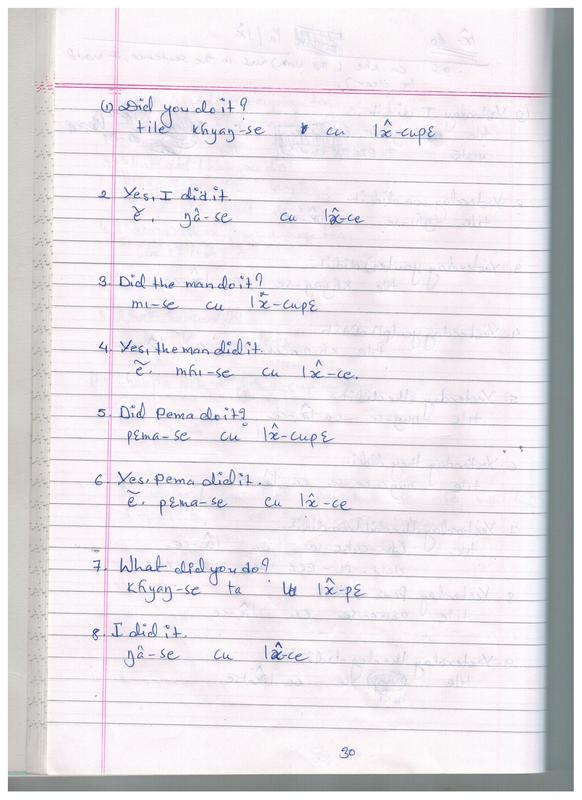 (1) Did you do it?
tile khyaŋ-se cu lx̂-cupɛ
2. Yes, I did it.
ẽ. ŋâ-se cu lx̂-ce
3. Did the man do it?
mı-se cu lx̂-cupɛ
4. Yes, the man did it.
ẽ. mhı-se cu lx̂-ce.
5. Did Pema do it?
pɛma-se cu lx̂-cupɛ
6. Yes, Pema did it.
ẽ. pɛma-se cu lx̂-ce
7. What did you do?
khyaŋ-se ta lx̂-pɛ
8. I did it.
ŋâ-se cu lx̂-ce
30